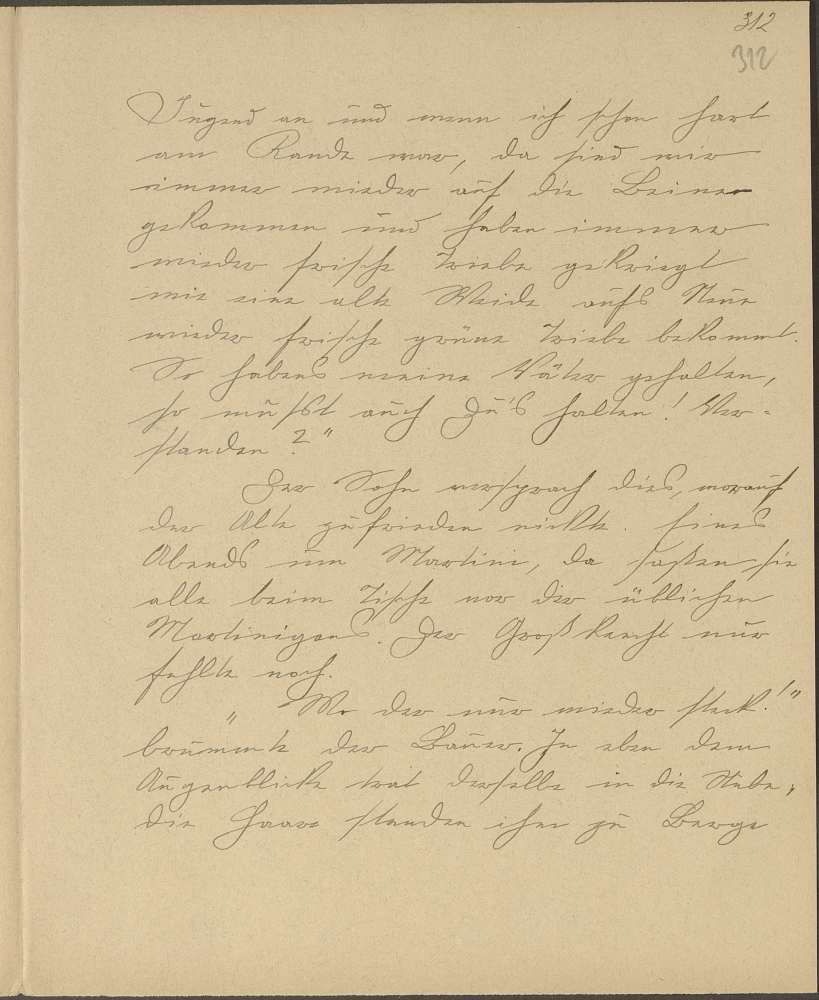 312
312
Jugend an und wenn ich schon hart
am Rande war, da sind wir
immer wieder auf die Beine
gekommen und haben immer
wieder frische Triebe gekriegt
wie eine alte Weide aufs Neue
wieder frische grüne Triebe bekommt.
So habens meine Väter gehalten,
so mußt auch Du's halten! Ver-
standen?"
Der Sohn versprach dies, worauf
der Alte zufrieden nickte. Eines
Abends um Martini, da saßen sie
alle beim Tische vor der üblichen
Martinigans. Der Großknecht nur
fehlte noch.
„Wo der nur wieder steckt!"
brummte der Bauer. In eben dem
Augenblicke trat derselbe in die Stube,
die Haare standen ihm zu Berge